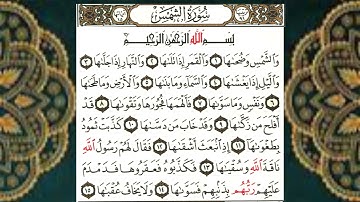 سورة الشمس
بسم الله الرحمن الرحيم
وَالشَّمْسِ وَضُحَىٰهَا ١ وَالْقَمَرِ إِذَا تَلَىٰهَا ٢ وَالنَّهَارِ إِذَا جَلَّىٰهَا ٣
وَاللَّيْلِ إِذَا يَغْشَىٰهَا ٤ وَالسَّمَاءِ وَمَا بَنَىٰهَا ٥ وَالْأَرْضِ وَمَا طَحَىٰهَا
٦ وَنَفْسٍ وَمَا سَوَّىٰهَا ٧ فَأَلْهَمَهَا فُجُورَهَا وَتَقْوَىٰهَا ٨ قَدْ
أَفْلَحَ مَن زَكَّىٰهَا ٩ وَقَدْ خَابَ مَن دَسَّىٰهَا ١٠ كَذَّبَتْ ثَمُودُ
بِطَغْوَىٰهَا ١١ إِذِ انبَعَثَ أَشْقَىٰهَا ١٢ فَقَالَ لَهُمْ رَسُولُ اللَّهِ
نَاقَةَ اللَّهِ وَسُقْيَٰهَا ١٣ فَكَذَّبُوهُ فَعَقَرُوهَا فَدَمْدَمَ
عَلَيْهِمْ رَبُّهُم بِذَنبِهِمْ فَسَوَّىٰهَا ١٤ وَلَا يَخَافُ عُقْبَٰهَا ١٥